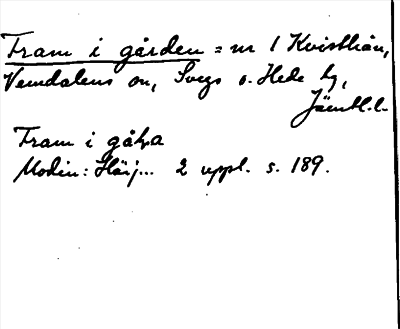 Fram i gården = nr 1 Kvisthån,
Vemdalens sn, Svegs o. Hede tg,
Jämtl.l.
Fram i gåłₒa
Modin: Härj... 2 uppl. s. 189.